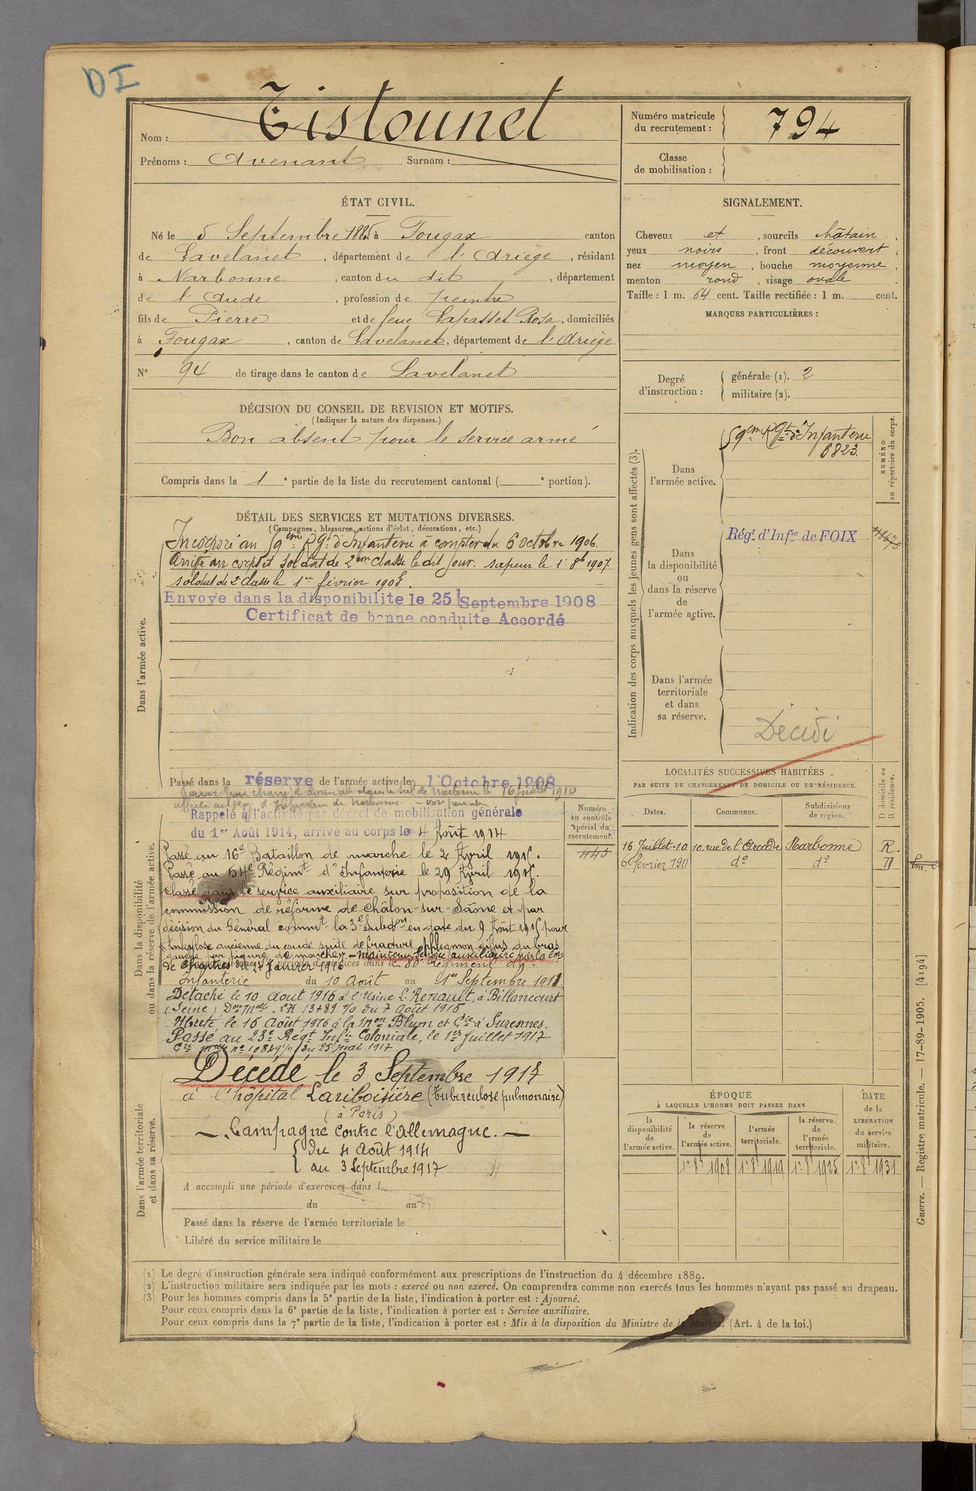 DI
Nom : Tistounet
Prénoms : Avenant Surnom :
Numéro matricule du recrutement : 794
Classe de mobilisation :
ÉTAT CIVIL.
Né le 5 Septembre 1885 à Fougax canton
de Lavelanet , département de l'Ariège , résidant
à Narbonne , canton du dit , département
de l'Aude , profession de peintre
fils de Pierre et de feue Lapasset Rosa , domiciliés
à Fougax , canton de Lavelanet , département de l'Ariège
N° 94 de tirage dans le canton de Lavelanet
SIGNALEMENT.
Cheveux et , sourcils châtain ,
yeux noirs , front découvert
nez moyen , bouche moyenne ,
menton rond , visage ovale
Taille : 1 m. 64 cent. Taille rectifiée : 1 m. cent.
MARQUES PARTICULIÈRES :
Degré d'instruction : générale (1). 2
militaire (2).
DÉCISION DU CONSEIL DE REVISION ET MOTIFS.
(Indiquer la nature des dispenses.)
Bon absent pour le service armé
Compris dans la 1 e partie de la liste du recrutement cantonal ( e portion).
DÉTAIL DES SERVICES ET MUTATIONS DIVERSES.
(Campagnes, blessures, actions d'éclat, décorations, etc.)
Dans l'armée active.
Incorporé au 59eme Rgt d'Infanterie à compter du 6 octobre 1906.
Arrivé au corps et soldat de 2eme classe le dit jour. sapeur le 1er 8b 1907
soldat de 2e classe le 1er février 1908.
Envoyé dans la disponibilité le 25 Septembre 1908
Certificat de bonne conduite Accordé
Passé dans la réserve de l'armée active le 1 Octobre 1908
Dans la disponibilité ou dans la réserve de l'armée active.
Rappelé à l'activité par décret de mobilisation générale
du 1er Août 1914, arrivé au corps le 4 Août 1914
Passé au 16e Bataillon de marche le 2 Avril 1915.
Passé au 54e Régimt d'Infanterie le 29 Avril 1915.
Classé dans le service auxiliaire sur proposition de la
commission de réforme de Châlon-sur-Saône et par
décision du Général commt la 3e Subdon en date du 9 Août 1915 pour
ankylose ancienne du coude suite de fracture, phlegmon du bras
de Chartres le 24 Janvier 1916
Infanterie du 10 Août au 1er Septembre 1911
Détaché le 10 août 1916 à l'Usine L. Renault, à Billancourt
(Seine) Don Mlle CA 13789 % du 7 août 1916
le 16 Août 1916 à la Mon Blum et Cie à Suresnes.
Passé au 23e Régt Infie Coloniale, le 1er juillet 1917
Numéro au contrôle spécial du recrutement.
445
Dans l'armée territoriale et dans sa réserve.
Décédé le 3 Septembre 1917
à l'hôpital Lariboisière (Tuberculose pulmonaire)
(à Paris)
Campagne contre l'Allemagne.
du 4 Août 1914
au 3 Septembre 1917
A accompli une période d'exercices dans l
du au
Passé dans la réserve de l'armée territoriale le
Libéré du service militaire le
Indication des corps auxquels les jeunes gens sont affectés (3).
NUMÉRO au répertoire du corps.
Dans l'armée active.
59eme Rgt d'Infanterie
6823.
Dans la disponibilité ou dans la réserve de l'armée active.
Régt d'Infie de FOIX
Dans l'armée territoriale et dans sa réserve.
Décédé
LOCALITÉS SUCCESSIVES HABITÉES
PAR SUITE DE CHANGEMENTS DE DOMICILE OU DE RÉSIDENCE.
D domicile ou R résidence.
Dates. Communes. Subdivisions de région.
16 Juillet 10 10, rue de l'Arcade Narbonne R.
6 février 1911 do do D
ÉPOQUE
À LAQUELLE L'HOMME DOIT PASSER DANS
la disponibilité de l'armée active. la réserve de l'armée active. l'armée territoriale. la réserve de l'armée territoriale.
DATE de la LIBÉRATION du service militaire.
1er 8b 1908 1er 8b 1919 1er 8b 1925 1er 8b 1931
Guerre. — Registre matricule. — 17-89-1905. [4194]
(1) Le degré d'instruction générale sera indiqué conformément aux prescriptions de l'instruction du 4 décembre 1889.
(2) L'instruction militaire sera indiquée par les mots : exercé ou non exercé. On comprendra comme non exercés tous les hommes n'ayant pas passé au drapeau.
(3) Pour les hommes compris dans la 5e partie de la liste, l'indication à porter est : Ajourné.
Pour ceux compris dans la 6e partie de la liste, l'indication à porter est : Service auxiliaire.
Pour ceux compris dans la 7e partie de la liste, l'indication à porter est : Mis à la disposition du Ministre de la Marine. (Art. 4 de la loi.)